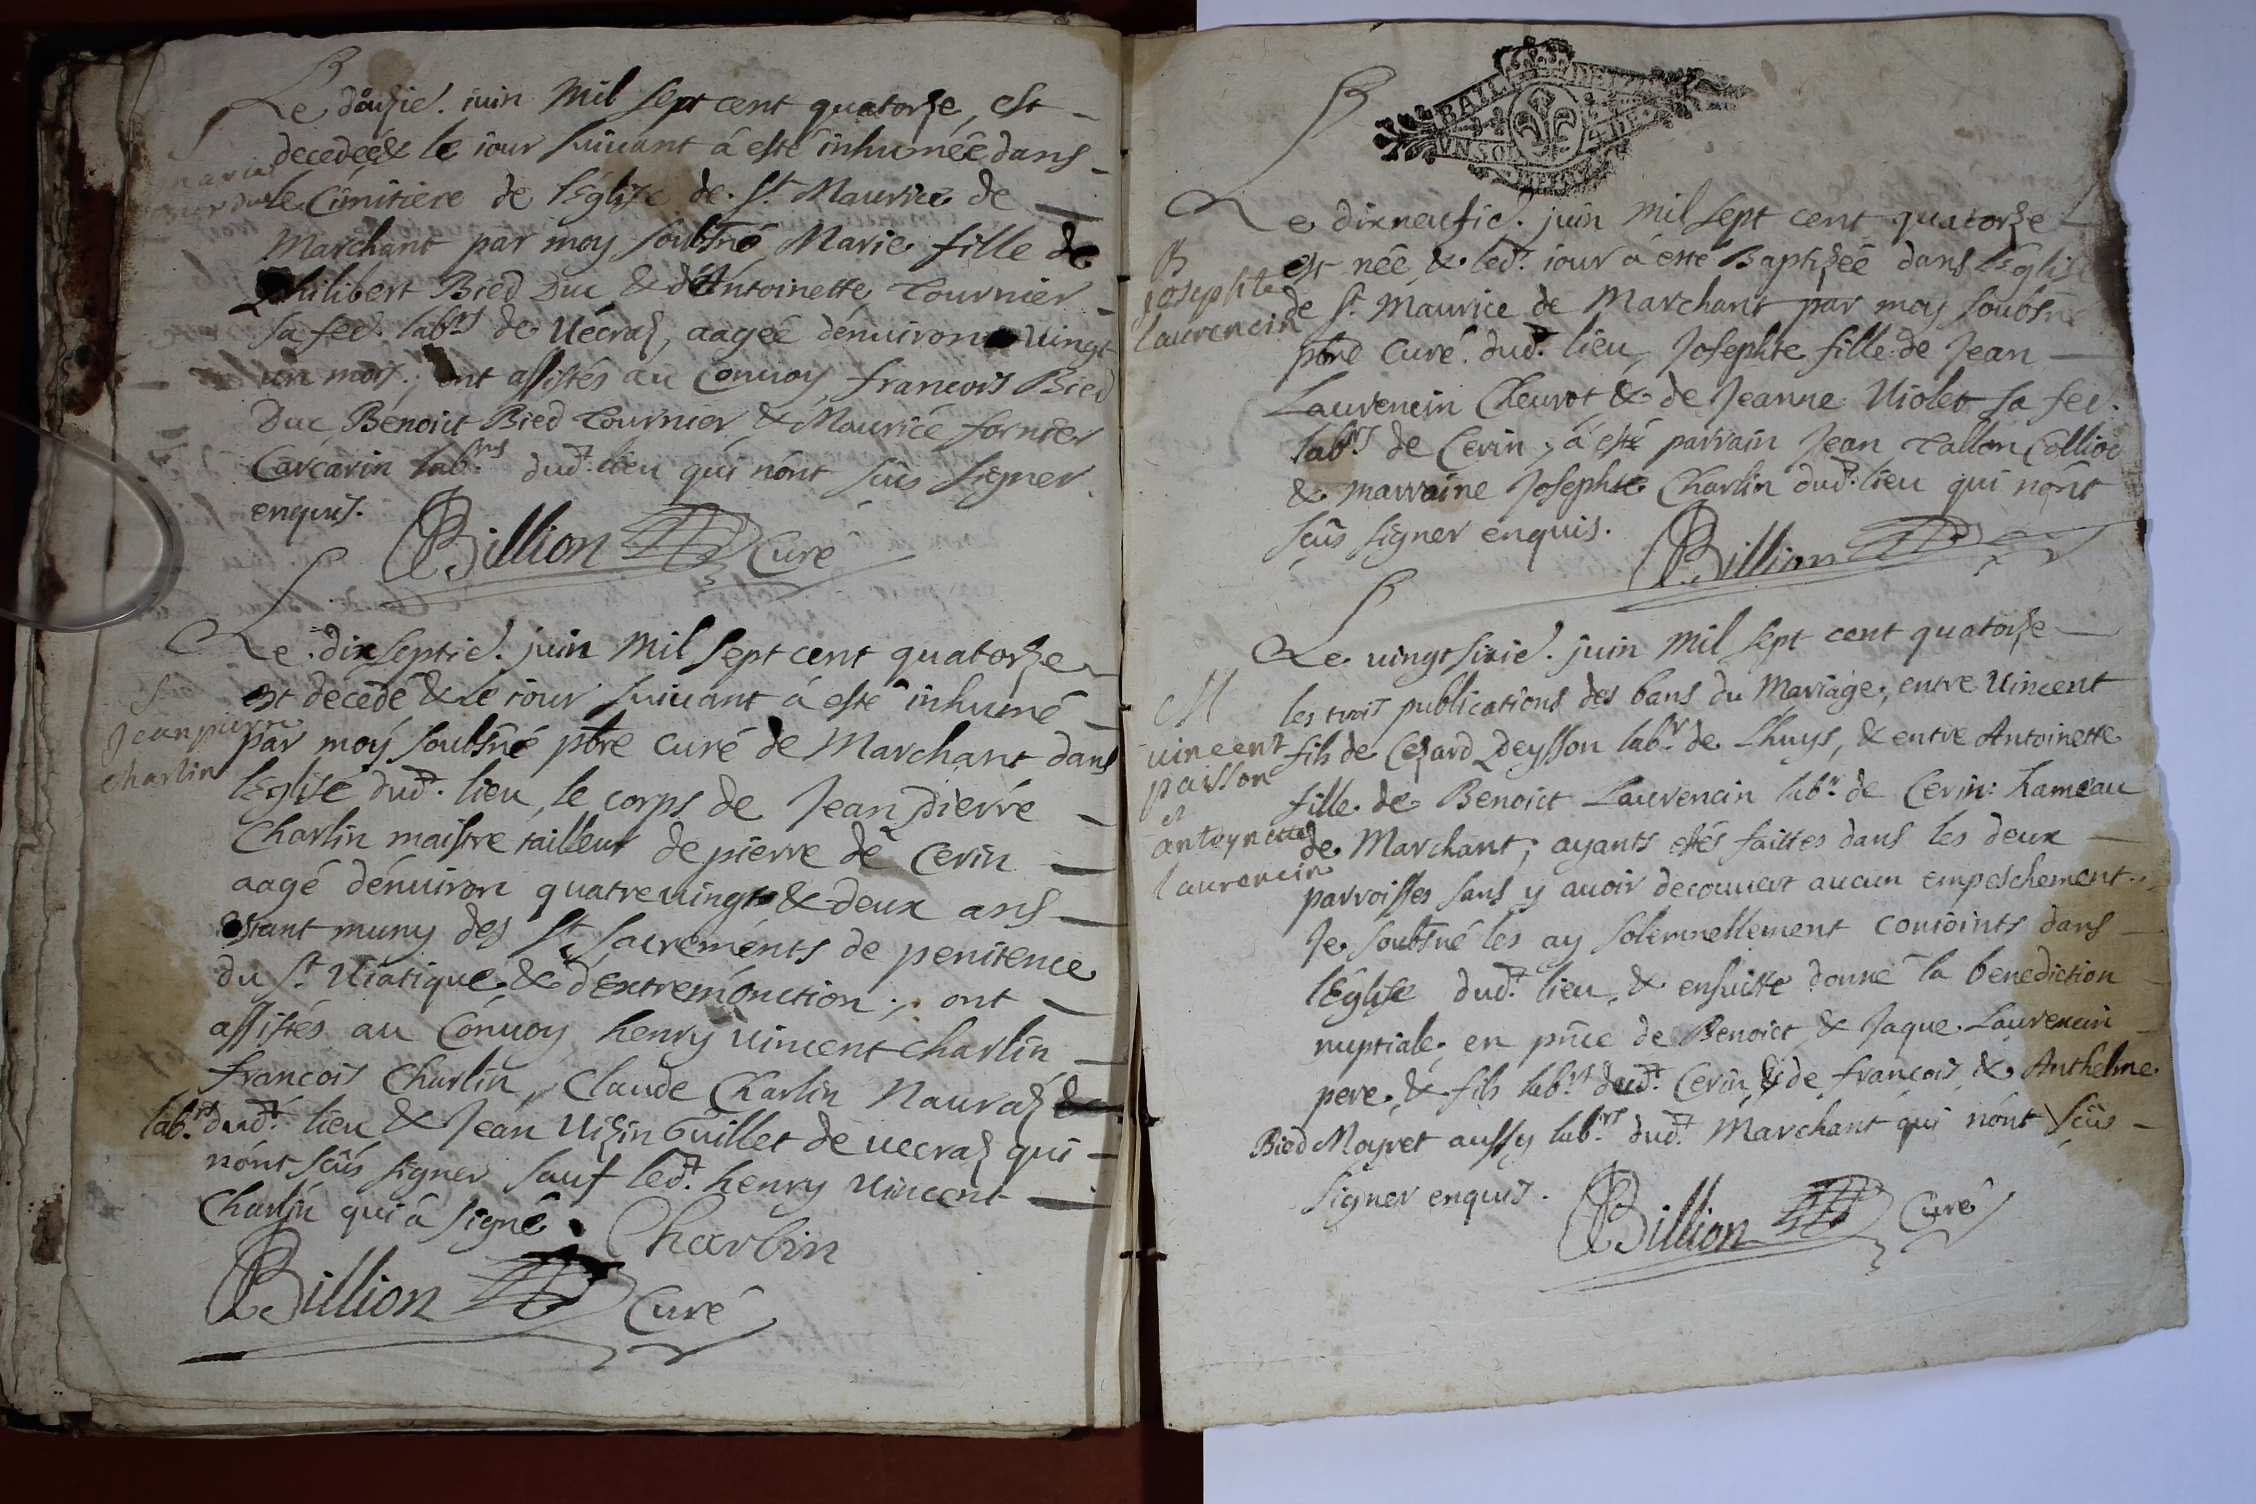 Le douzie. juin mil sept cent quatorze, est
decedée & le iour suiuant à esté inhumée dans
S
maria
le Cimitiere de l'Eglise de St Maurice de
Marchant par moy soubsné, Marie fille de
philibert Bied Duc & d'Antoinette Tournier
sa fee. labrs de Uécraz, aageé dénuiron Vingt
un mois; ont assistés au Conuoy francois Bied
Duc Benoict Bied Tournier & Maurice fornier
Carcarin labrs. dud. lieu qui nónt sûs signer
enquis.
Billion Curé
Le dixseptie. juin mil sept cent quatorze
est decedé & le iour suiuant à esté inhumé
S
Jean pierre
charlin
par moy soubsné pbre curé de Marchant dans
l'Eglise dud. lieu, le corps de Jean pierre
Charlin maistre tailleur de pierre de Cerin
aagé dénuiron quatreuingt & deux ans
estant muny des St sacrements de penitence
du St Uiatique & d'Extremónction; ont
assistés au Cónuoy henry uincent charlin
francois Charlin, Claude Charlin Nauraz
labrs dud. lieu & Jean Uizin Guillet de uecraz qui
nónt sçûs signer sauf led. henry Uincent
Charlin qui à signé. Charlin
Billion Curé
BAIL DE
UN SOL
Le dixneufie. juin mil sept cent quatorze
est née & led. iour à esté Baptizéé dans l'Eglise
B
josephte
laurencin
de St Maurice de Marchant par moy soubsné
pbre curé dud. lieu, Josephte fille de Jean
Laurencin Cheurot & de Jeanne Uiolet sa fee.
labrs de Cerin, à esté parrain Jean Tallon Collioc
& marraine Josephte Charlin dud. lieu qui nónt
sçûs signer enquis.
Billion
Le uingtsixie. juin mil sept cent quatorze
les trois publications des bans du Mariage, entre Uincent
M
uincent
paisson
et
antoynette
laurencin
fils de Cezard peysson labr. de Lhuys, & entre Antoinette
fille de Benoict Laurencin labr. de Cerin hameau
de Marchant; ayants estés faittes dans les deux
parroisses sans y auoir decouuert aucun empeschement
Je soubsné les ay solemnellement conioints dans
l'Église dud. lieu, & ensuitte donné la benediction
nuptiale en pnce de Benoict & Jaque Laurencin
pere & fils labrs dud. Cerin & de francois & Anthelme
Bied Moyret aussy labrs dud. Marchant qui nónt sçûs
signer enquis.
Billion Curé